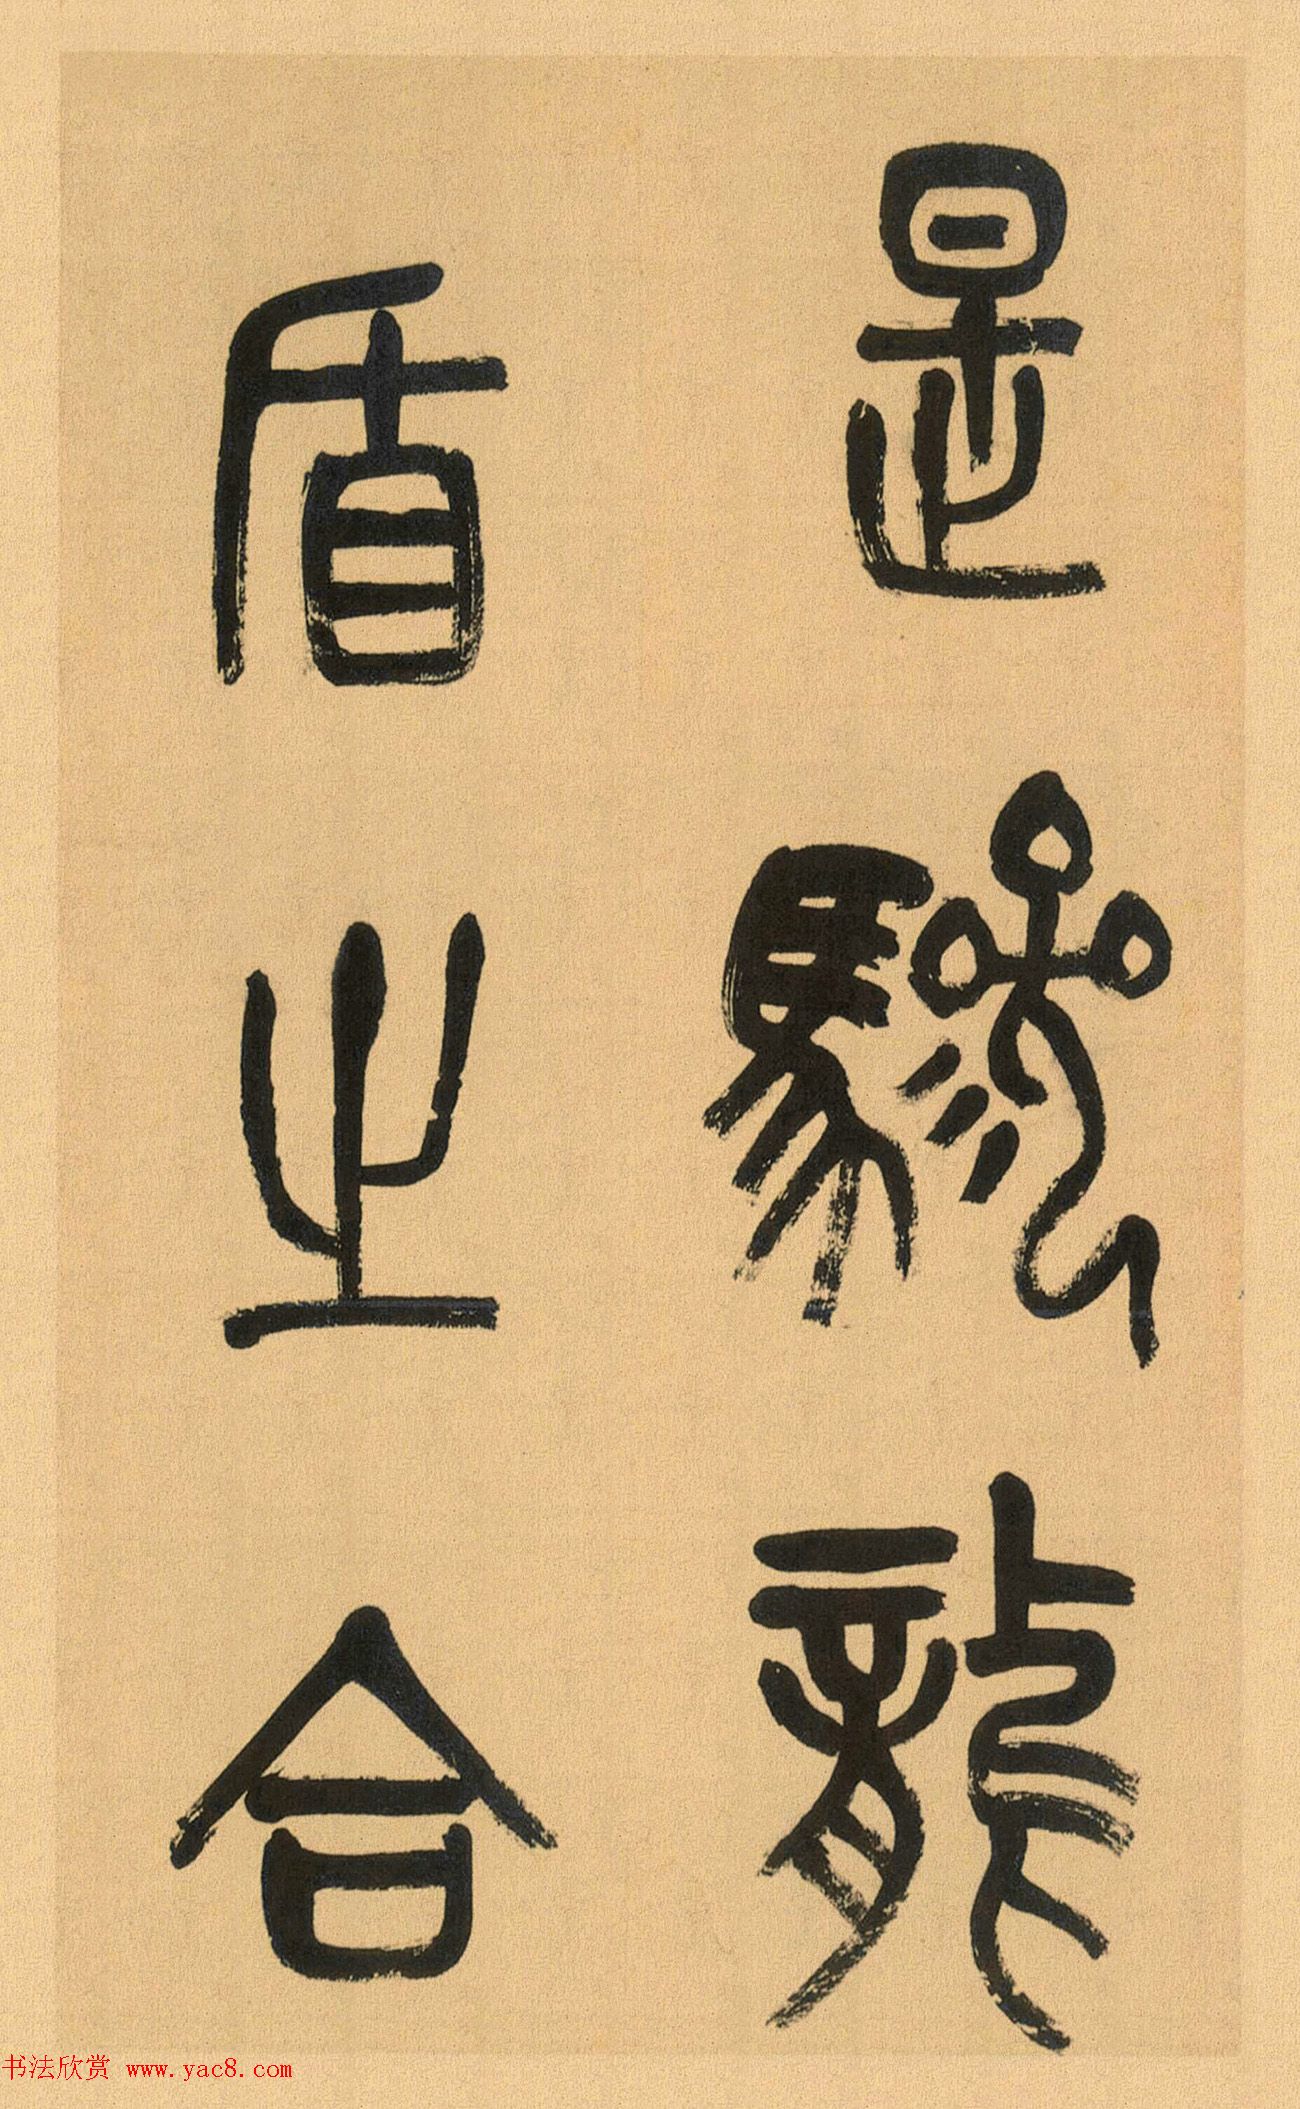 是驂龍
盾之合
书法欣赏 www.yac8.com